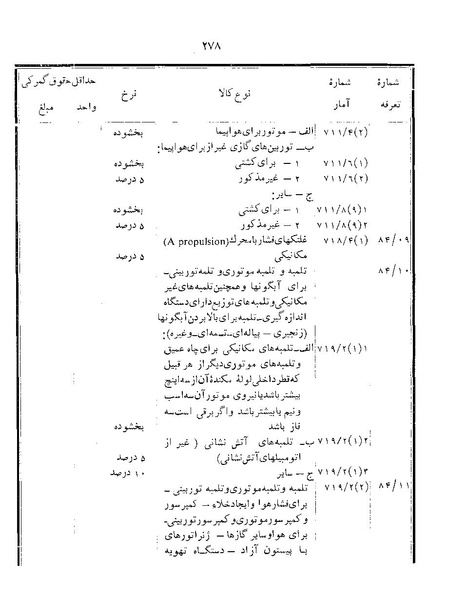 ۲۷۸
شمارهٔ شمارهٔ نوع کالا نرخ حداقل حقوق گمرکی
تعرفه آمار واحد مبلغ
۷۱۱/۴(۲) الف – موتور برای هواپیما بخشوده
ب – توربین‌های گازی غیر از برای هواپیما:
۷۱۱/۶(۱) ۱ – برای کشتی بخشوده
۷۱۱/۶(۲) ۲ – غیر مذکور ۵ درصد
ج – سایر:
۷۱۱/۸(۹)۱ ۱ – برای کشتی بخشوده
۷۱۱/۸(۹)۲ ۲ – غیر مذکور ۵ درصد
۸۴/۰۹ ۷۱۸/۴(۱) غلتکهای فشار با محرک (A propulsion)
مکانیکی ۵ درصد
۸۴/۱۰ تلمبه و تلمبه موتوری و تلمبه توربینی –
برای آبگونها و همچنین تلمبه‌های غیر
مکانیکی و تلمبه های توزیع دارای دستگاه
اندازه گیری – تلمبه برای بالا بردن آبگونها
(زنجیری – پیاله‌ای – تسمه‌ای – وغیره):
۷۱۹/۲(۱)۱ الف – تلمبه‌های مکانیکی برای چاه عمیق
و تلمبه های موتوری دیگر از هر قبیل
که قطر داخلی لولهٔ مکندهٔ آن از سه اینچ
بیشتر باشد یا نیروی موتور آن سه اسب
و نیم یا بیشتر باشد و اگر برقی است سه
فاز باشد بخشوده
۷۱۹/۲(۱)۲ ب – تلمبه‌های آتش نشانی (غیر از
اتومبیلهای آتش نشانی) ۵ درصد
۷۱۹/۲(۱)۳ ج – سایر ۱۰ درصد
۸۴/۱۱ ۷۱۹/۲(۲) تلمبه و تلمبه موتوری و تلمبه توربینی –
برای فشار هوا و ایجاد خلاء – کمپرسور
و کمپرسور موتوری و کمپرسور توربینی –
برای هوا و سایر گازها – ژنراتورهای
با پیستون آزاد – دستگاه تهویه